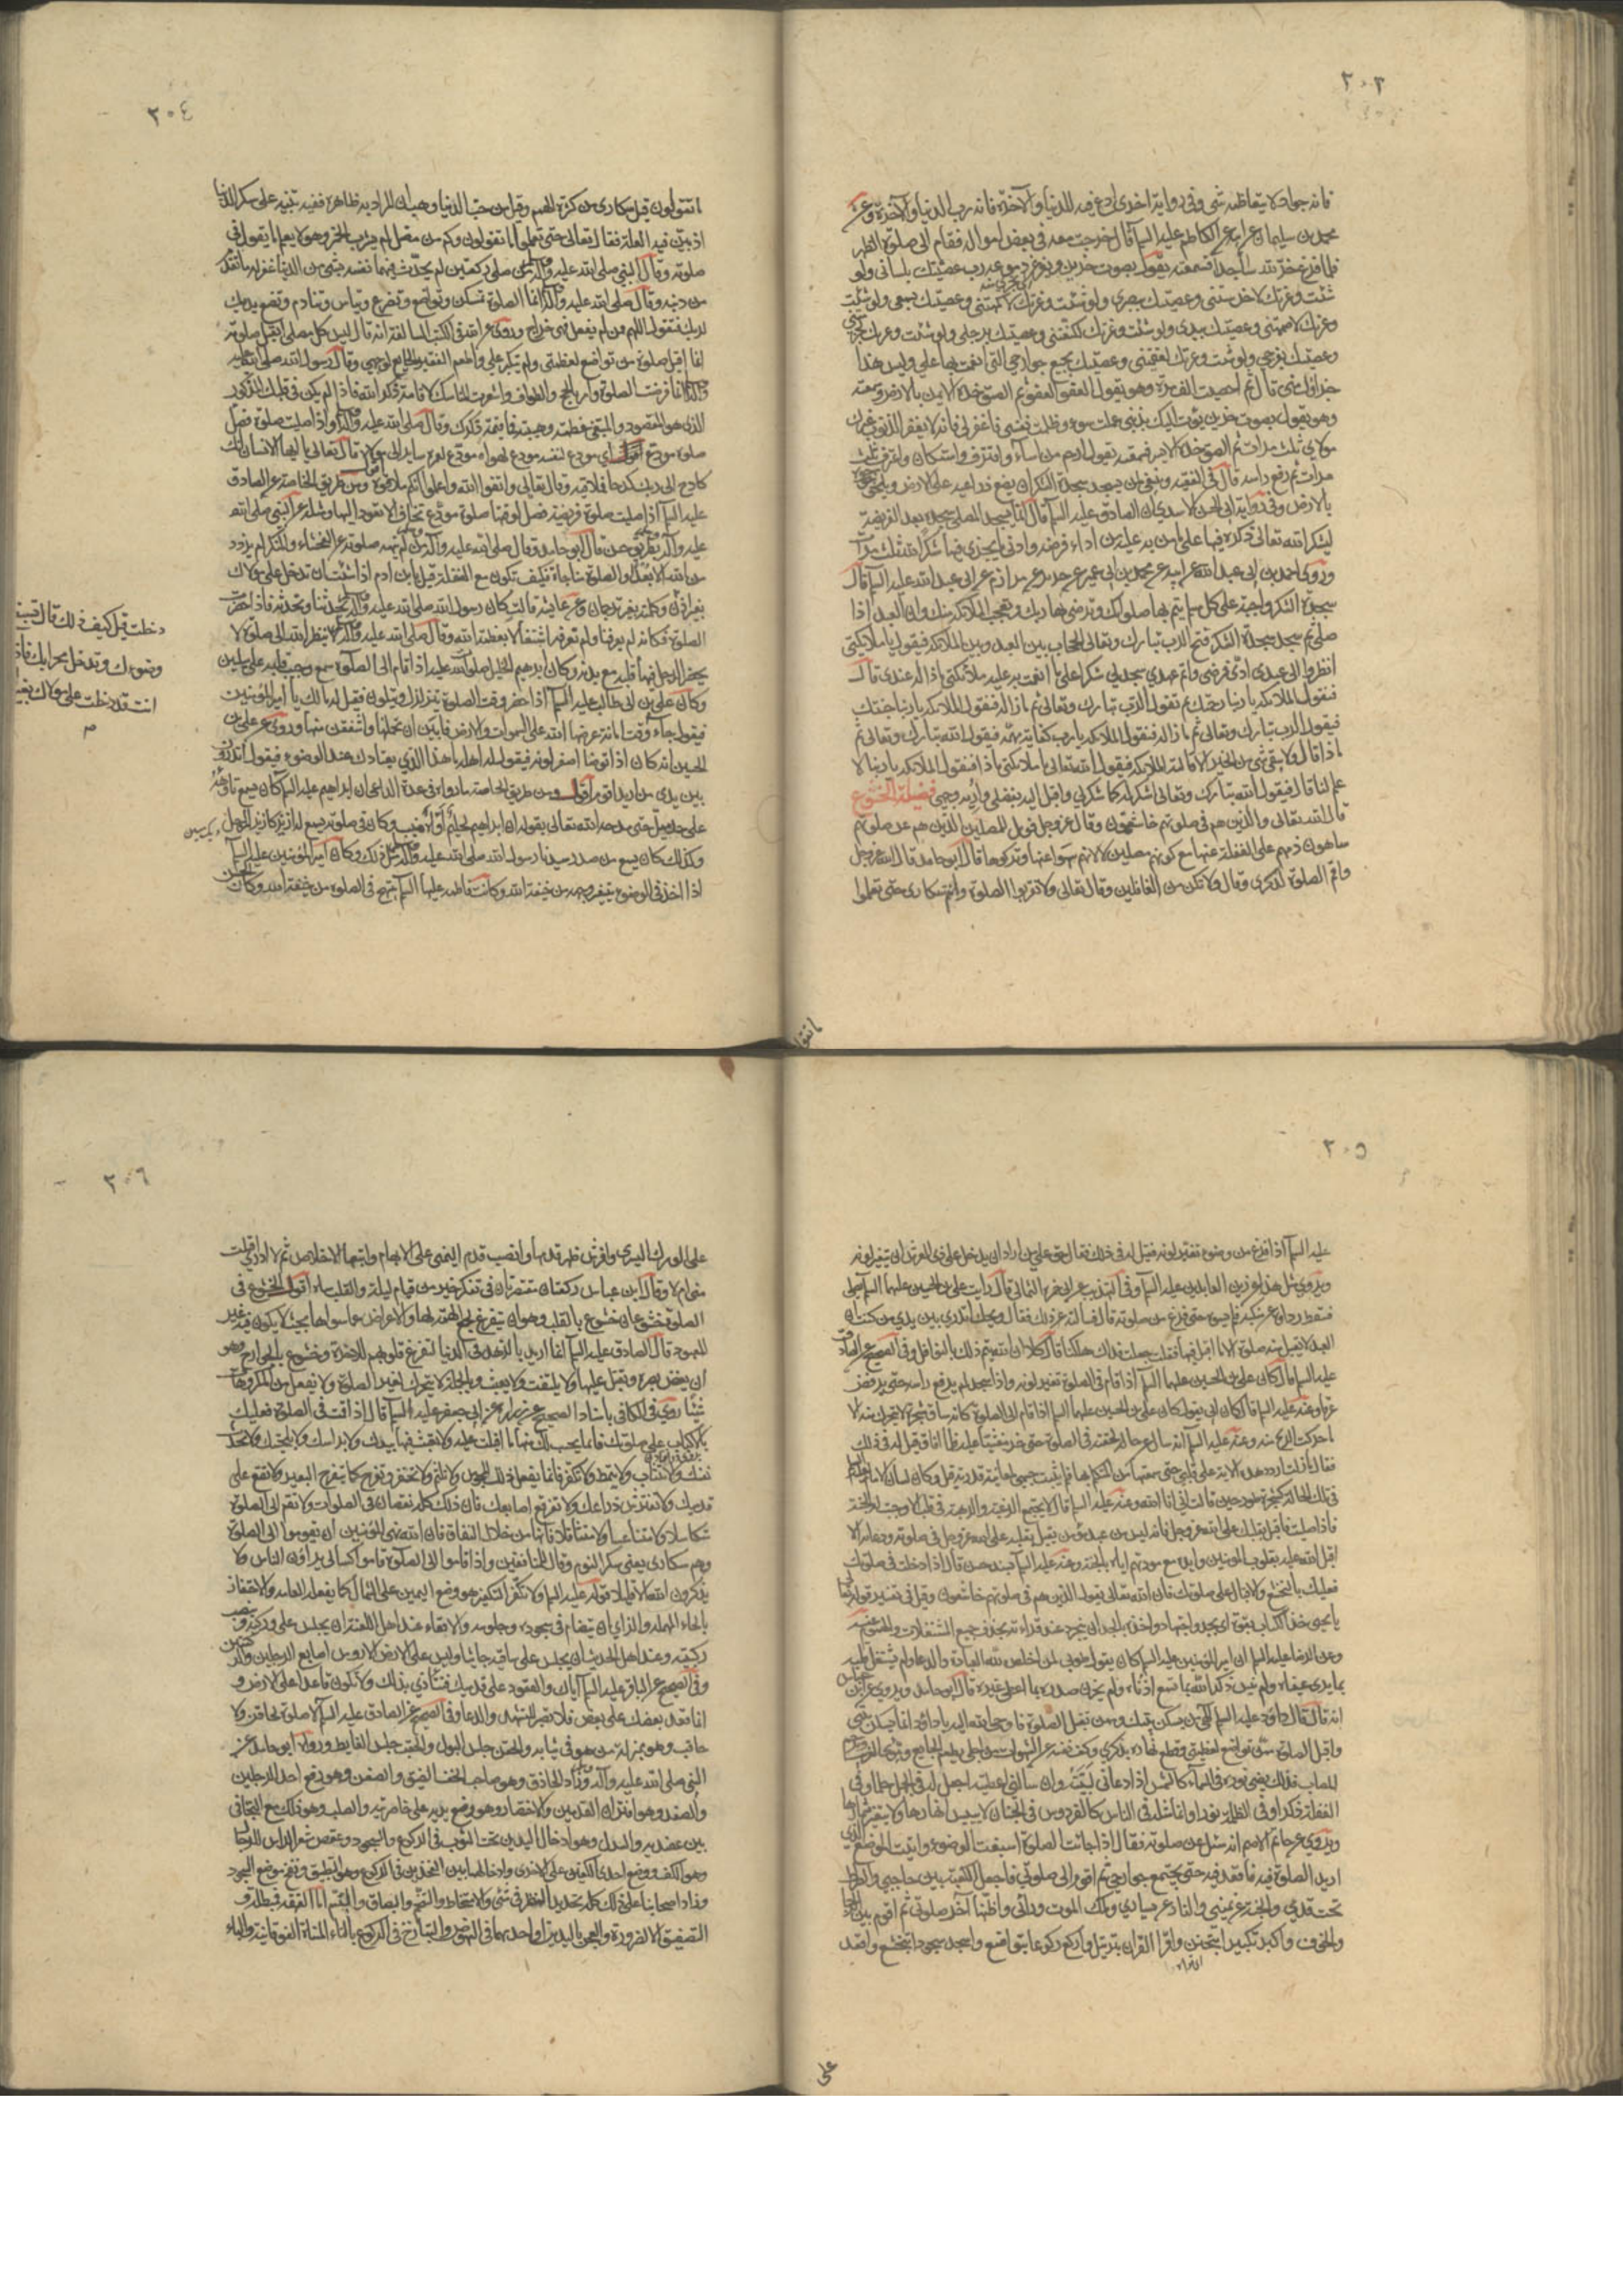 ٢٠٣
فانه جواد لا يتعاظمه شئ وفي رواية اخرى ادع فيه للدنيا والآخرة فانه رب الدنيا والآخرة وعن
محمد بن سليمان عن ابيه عن الكاظم عليه السلم قال خرجت معه في بعض امواله فقام الى صلوة الظهر
فلما فرغ خر لله ساجدا فسمعته يقول بصوت حزين وتغرغر دموعه رب عصيتك بلساني ولو
شئت وعزتك لاخرستني وعصيتك ببصري ولو شئت وعزتك لاكمهتني وعصيتك بسمعي ولو شئت
وعزتك لاصممتني وعصيتك بيدي ولو شئت وعزتك لكنعتني وعصيتك برجلي ولو شئت وعزتك لجذمتني
وعصيتك بفرجي ولو شئت وعزتك لعقمتني وعصيتك بجميع جوارحي التي انعمت بها علي وليس هذا
جزاؤك مني قال ثم احصيت له الف مرة وهو يقول العفو العفو ثم الصق خده الايمن بالارض وسمعته
وهو يقول بصوت حزين بؤت اليك بذنبي عملت سوء وظلمت نفسي فاغفر لي فانه لا يغفر الذنوب غيرك
مولاي ثلث مرات ثم الصق خده الايسر فسمعته يقول ارحم من اساء واقترف واستكان واعترف ثلث
مرات ثم رفع راسه قال في الفقيه وينبغي لمن يسجد سجدة الشكر ان يضع ذراعيه على الارض ويلصق جؤجؤه
بالارض وفي رواية ابي الحسن الاسدي ان الصادق عليه السلم قال انما يسجد المصلي سجدة بعد الفريضة
ليشكر الله تعالى ذكره فيها على ما من به عليه من اداء فرضه وادنى ما يجزي فيها شكرا لله ثلث مرات
وروى احمد بن ابي عبد الله عن ابيه عن محمد بن ابي عمير عن حريز عن مرازم عن ابي عبد الله عليه السلم قال
سجدة الشكر واجبة على كل مسلم تتم بها صلوتك وترضى بها ربك وتعجب الملائكة منك وان العبد اذا
صلى ثم سجد سجدة الشكر فتح الرب تبارك وتعالى الحجاب بين العبد وبين الملائكة فيقول يا ملائكتي
انظروا الى عبدي ادى فرضي واتم عهدي ثم سجد لي شكرا على ما انعمت به عليه ملائكتي ماذا له عندي قال
فتقول الملائكة يا ربنا رحمتك ثم يقول الرب تبارك وتعالى ثم ماذا له فتقول الملائكة يا ربنا جنتك
فيقول الرب تبارك وتعالى ثم ماذا له فتقول الملائكة يا رب كفاية مهمه فيقول الله تبارك وتعالى ثم
ماذا قال ولا يبقى شئ من الخير الا قالته الملائكة فيقول الله تعالى يا ملائكتي ثم ماذا فتقول الملائكة يا ربنا لا
علم لنا قال فيقول الله تبارك وتعالى اشكر له كما شكر لي واقبل اليه بفضلي واريه وجهي فضيلة الخشوع
قال الله تعالى والذين هم في صلوتهم خاشعون وقال عز وجل فويل للمصلين الذين هم عن صلوتهم
ساهون ذمهم على الغفلة عنها مع كونهم مصلين لا لانهم سهوا عنها وتركوها قال ابو حامد قال الله عز وجل
واقم الصلوة لذكري وقال ولا تكن من الغافلين وقال تعالى ولا تقربوا الصلوة وانتم سكارى حتى تعلموا
ما تقو
٢٠٤
ما تقولون قيل سكارى من كثرة الهم وقيل من حب الدنيا وهب ان المراد به ظاهره ففيه تنبيه على سكر الدنيا
اذ بين فيه العلة فقال تعالى حتى تعلموا ما تقولون وكم من مصل لم يشرب الخمر وهو لا يعلم ما يقول في
صلوته وقال النبي صلى الله عليه وآله من صلى ركعتين لم يحدث فيهما نفسه بشئ من الدنيا غفر له ما تقدم
من ذنبه وقال صلى الله عليه وآله انما الصلوة تمسكن وتواضع وتضرع وتباس وتنادم وتضع يديك
فتقول اللهم اللهم فمن لم يفعل فهي خداج وروي عن الله في الكتب السالفة انه قال ليس كل مصل اتقبل صلوته
انما اقبل صلوة من تواضع لعظمتي ولم يتكبر علي واطعم الفقير الجايع لوجهي وقال رسول الله صلى الله عليه
وآله انما فرضت الصلوة وامر بالحج والطواف واشعرت المناسك لاقامة ذكر الله فاذا لم يكن في قلبك للمذكور
الذي هو المقصود والمبتغى عظمة وهيبة فما قيمة ذكرك وقال صلى الله عليه وآله واذا صليت صلوة فصل
صلوة مودع اي مودع لنفسه مودع لهواه مودع لعمره ساير الى مولاه قال تعالى يا ايها الانسان انك
كادح الى ربك كدحا فملاقيه وقال تعالى واتقوا الله واعلموا انكم ملاقوه ومن طريق الخاصة عن الصادق
عليه السلم اذا صليت صلوة فريضة فصل لوقتها صلوة مودع تخاف الا تعود اليها ومثله عن النبي صلى الله
عليه وآله بطريق حسن قال ابو حامد وقال صلى الله عليه وآله من لم تنهه صلوته عن الفحشاء والمنكر لم يزدد
من الله الا بعدا والصلوة مناجاة فكيف تكون مع الغفلة قيل يا ابن ادم اذا شئت ان تدخل على مولاك
بغير اذن وتكلمه بغير ترجمان وعن عايشة قالت كان رسول الله صلى الله عليه وآله يحدثنا ونحدثه فاذا حضرت
الصلوة فكانه لم يعرفنا ولم نعرفه اشتغالا بعظمة الله وقال صلى الله عليه وآله لا ينظر الله الى صلوة لا
يحضر الرجل فيها قلبه مع بدنه وكان ابرهيم الخليل صلوات الله عليه اذا قام الى الصلوة سمع وجيب قلبه على ميلين
وكان علي بن ابي طالب عليه السلم اذا حضر وقت الصلوة يتزلزل ويتلون فقيل له ما لك يا امير المؤمنين
فيقول جاء وقت امانة عرضها الله على السموات والارض فابين ان يحملنها واشفقن منها وروي عن علي بن
الحسين انه كان اذا توضا اصفر لونه فيقول له اهله ما هذا الذي يعتادك عند الوضوء فيقول اتدرون
بين يدي من اريد ان اقوم اقول ومن طريق الخاصة ما رواه في عدة الداعي ان ابراهيم عليه السلم كان يسمع تاوهه
على حد ميل حتى مدحه الله تعالى بقوله ان ابراهيم لحليم اواه منيب وكان في صلوته يسمع له ازيز كازيز المرجل
وكذلك كان يسمع من صدر سيدنا رسول الله صلى الله عليه وآله مثل ذلك وكان امير المؤمنين عليه السلم
اذا اخذ في الوضوء يتغير وجهه من خيفة الله وكانت فاطمة عليها السلم تنهج في الصلوة من خيفة الله وكان الحسن
دخلت قيل كيف ذلك قال تسبغ
وضوءك وتدخل محرابك فاذا
انت قد دخلت على مولاك بغير
٢٠٥
عليه السلم اذا فرغ من وضوئه تغير لونه فقيل له في ذلك فقال حق على من اراد ان يدخل على ذي العرش ان يتغير لونه
ويروى مثل هذا عن زين العابدين عليه السلم وفي التهذيب عن ابي حمزة الثمالي قال رايت علي بن الحسين عليهما السلم يصلي
فسقط رداؤه عن منكبه فلم يسوه حتى فرغ من صلوته قال فسالته عن ذلك فقال ويحك اتدري بين يدي من كنت ان
العبد لا يقبل منه صلوة الا ما اقبل فيها فقلت جعلت فداك هلكنا قال كلا ان الله يتم ذلك بالنوافل وفي الصحيح عن الصادق
عليه السلم قال كان علي بن الحسين عليهما السلم اذا قام في الصلوة تغير لونه واذا سجد لم يرفع راسه حتى يرفض
عرقا وعنه عليه السلم قال كان ابي يقول كان علي بن الحسين عليهما السلم اذا قام الى الصلوة كانه ساق شجرة لا يتحرك منه الا
ما حركت الريح منه وعنه عليه السلم انه سئل عن حالة لحقته في الصلوة حتى خر مغشيا عليه فلما افاق قيل له في ذلك
فقال ما زلت اردد هذه الاية على قلبي حتى سمعتها من المتكلم بها فلم يثبت جسمي لمعاينة قدرته قيل وكان لسان الامام
في تلك الحالة كشجرة طور حين قالت اني انا الله وعنه عليه السلم قال لا يجتمع الرغبة والرهبة في قلب الا وجبت له الجنة
فاذا صليت فاقبل بقلبك على الله عز وجل فانه ليس من عبد مؤمن يقبل بقلبه على الله عز وجل في صلوته ودعائه الا
اقبل الله عليه بقلوب المؤمنين وايده مع مودتهم اياه بالجنة وعنه عليه السلم بسند حسن قال اذا دخلت في صلوتك
فعليك بالتخشع والاقبال على صلوتك فان الله تعالى يقول الذين هم في صلوتهم خاشعون وقيل في تفسير قوله تعالى
يا يحيى خذ الكتاب بقوة اي بجد واجتهاد واخذه بالجد ان يتجرد عند قراءته بحذف جميع المشتغلات والهموم عنه
وعن الرضا عليه السلم ان امير المؤمنين عليه السلم كان يقول طوبى لمن اخلص لله العبادة والدعاء ولم يشتغل قلبه
بما يرى عيناه ولم ينس ذكر الله بما تسمع اذناه ولم يحزن صدره بما اعطي غيره قال ابو حامد ويروى عن ابن عباس
انه قال قال داود عليه السلم الهي من يسكن بيتك وممن تقبل الصلوة فاوحى الله اليه يا داود انما يسكن بيتي
واقبل الصلوة ممن تواضع لعظمتي وقطع نهاره بذكري وكف نفسه عن الشهوات من اجلي يطعم الجايع ويؤوي الغريب ويرحم
المصاب فذلك يضئ نوره في السماء كالشمس اذا دعاني لبيته وان سالني اعطيته اجعل له في الجهل حلما وفي
الغفلة ذكرا وفي الظلمة نورا وانما مثله في الناس كالفردوس في الجنان لا ييبس انهارها ولا يتغير ثمارها
ويروى عن حاتم الاصم انه سئل عن صلوته فقال اذا حانت الصلوة اسبغت الوضوء واتيت الموضع الذي
اريد الصلوة فيه فاقعد فيه حتى يجتمع جوارحي ثم اقوم الى صلوتي فاجعل الكعبة بين حاجبي والصراط
تحت قدمي والجنة عن يميني والنار عن يساري وملك الموت ورائي واظنها آخر صلوتي ثم اقوم بين الرجاء
والخوف واكبر تكبيرا بتحنن واقرا القرآن بترتيل واركع ركوعا بتواضع واسجد سجودا بتخشع واقعد
على
٢٠٦
على الورك اليسرى وافرش ظهر قدمها وانصب قدم اليمنى على الابهام واتبعها الاخلاص ثم لا ادري اقبلت
مني ام لا وقال ابن عباس ركعتان مقتصرتان في تفكر خير من قيام ليلة والقلب ساه اقول الخشوع في
الصلوة خشوعان خشوع بالقلب وهو ان يتفرغ لجمع الهمة لها والاعراض عما سواها بحيث لا يكون فيه غير
المعبود قال الصادق عليه السلم انما اريد بالزهد في الدنيا لتفرغ قلوبهم للاخرة وخشوع بالجوارح وهو
ان يغض بصره ويقبل عليها ولا يلتفت ولا يعبث وبالجملة لا يتحرك لغير الصلوة ولا يفعل من المكروهات
شيئا روى في الكافي باسناده الصحيح عن زرارة عن ابي جعفر عليه السلم قال اذا قمت في الصلوة فعليك
بالاقبال على صلوتك فانما يحسب لك منها ما اقبلت عليه ولا تعبث فيها بيدك ولا براسك ولا بلحيتك ولا تحدث
نفسك ولا تتثاب ولا تتمط ولا تكفر فانما يفعل ذلك المجوس ولا تلثم ولا تحتفز وتفرج كما يتفرج البعير ولا تقع على
قدميك ولا تفترش ذراعيك ولا تفرقع اصابعك فان ذلك كله نقصان في الصلوات ولا تقم الى الصلوة
متكاسلا ولا متناعسا ولا متثاقلا فانها من خلال النفاق فان الله نهى المؤمنين ان يقوموا الى الصلوة
وهم سكارى يعني سكر النوم وقال للمنافقين واذا قاموا الى الصلوة قاموا كسالى يراؤن الناس ولا
يذكرون الله الا قليلا قوله عليه السلم ولا تكفر التكفير هو وضع اليمين على الشمال كما يفعله العامة والاحتفاز
بالحاء المهملة والزاي ان يتضام في سجوده وجلوسه والاقعاء عند اهل اللغة ان يجلس على وركيه وينصب
ركبتيه وعند اهل الحديث ان يجلس على ساقيه جاثيا وليس على الارض الا روس اصابع الرجلين والركبتين
وفي الصحيح عن الباقر عليه السلم اياك والقعود على قدميك فتتاذى بذلك ولا تكون قاعدا على الارض و
انما قعد بعضك على بعض فلا تصبر للتشهد والدعاء وفي الصحيح عن الصادق عليه السلم لا صلوة لحاقن ولا
حاقب وهو بمنزلة من هو في ثيابه والحقن حبس البول والحقب حبس الغايط وروى ابو حامد عن
النبي صلى الله عليه وآله وزاد الحاذق وهو صاحب الخف الضيق والصفن وهو رفع احد الرجلين
والصفد وهو اقتران القدمين والاختصار وهو وضع يديه على خاصرتيه والصلب وهو ذلك مع التجافي
بين عضديه والسدل وهو ادخال اليدين تحت الثوب في الركوع والسجود وعقص شعر الراس للرجال
وهو الكف ووضع احدى الكفين على الاخرى وادخالهما بين الفخذين في الركوع وهو التطبيق ونفخ موضع السجود
وزاد اصحابنا على ذلك كله تحديد النظر في شئ والامتخاط والتنخم والبصاق والتبسم اما القهقهة فمبطلة و
التصفيق الا لضرورة والعجن باليدين او احديهما في النهوض والتبازخ في الركوع بالتاء المثناة الفوقانية والباء